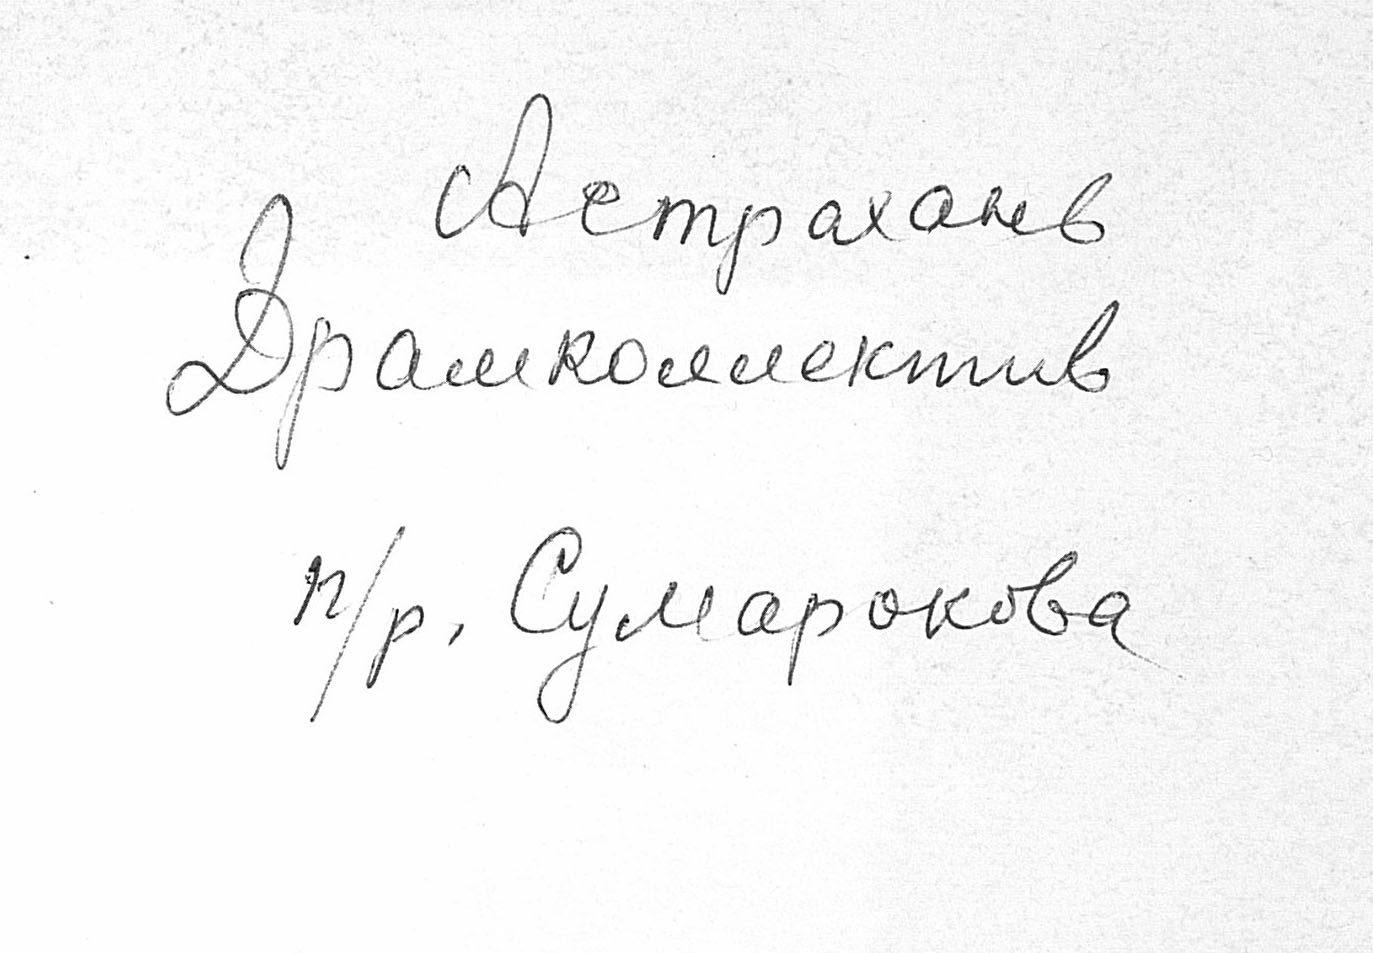 Астрахань
Драмколлектив
п/р. Сумарокова